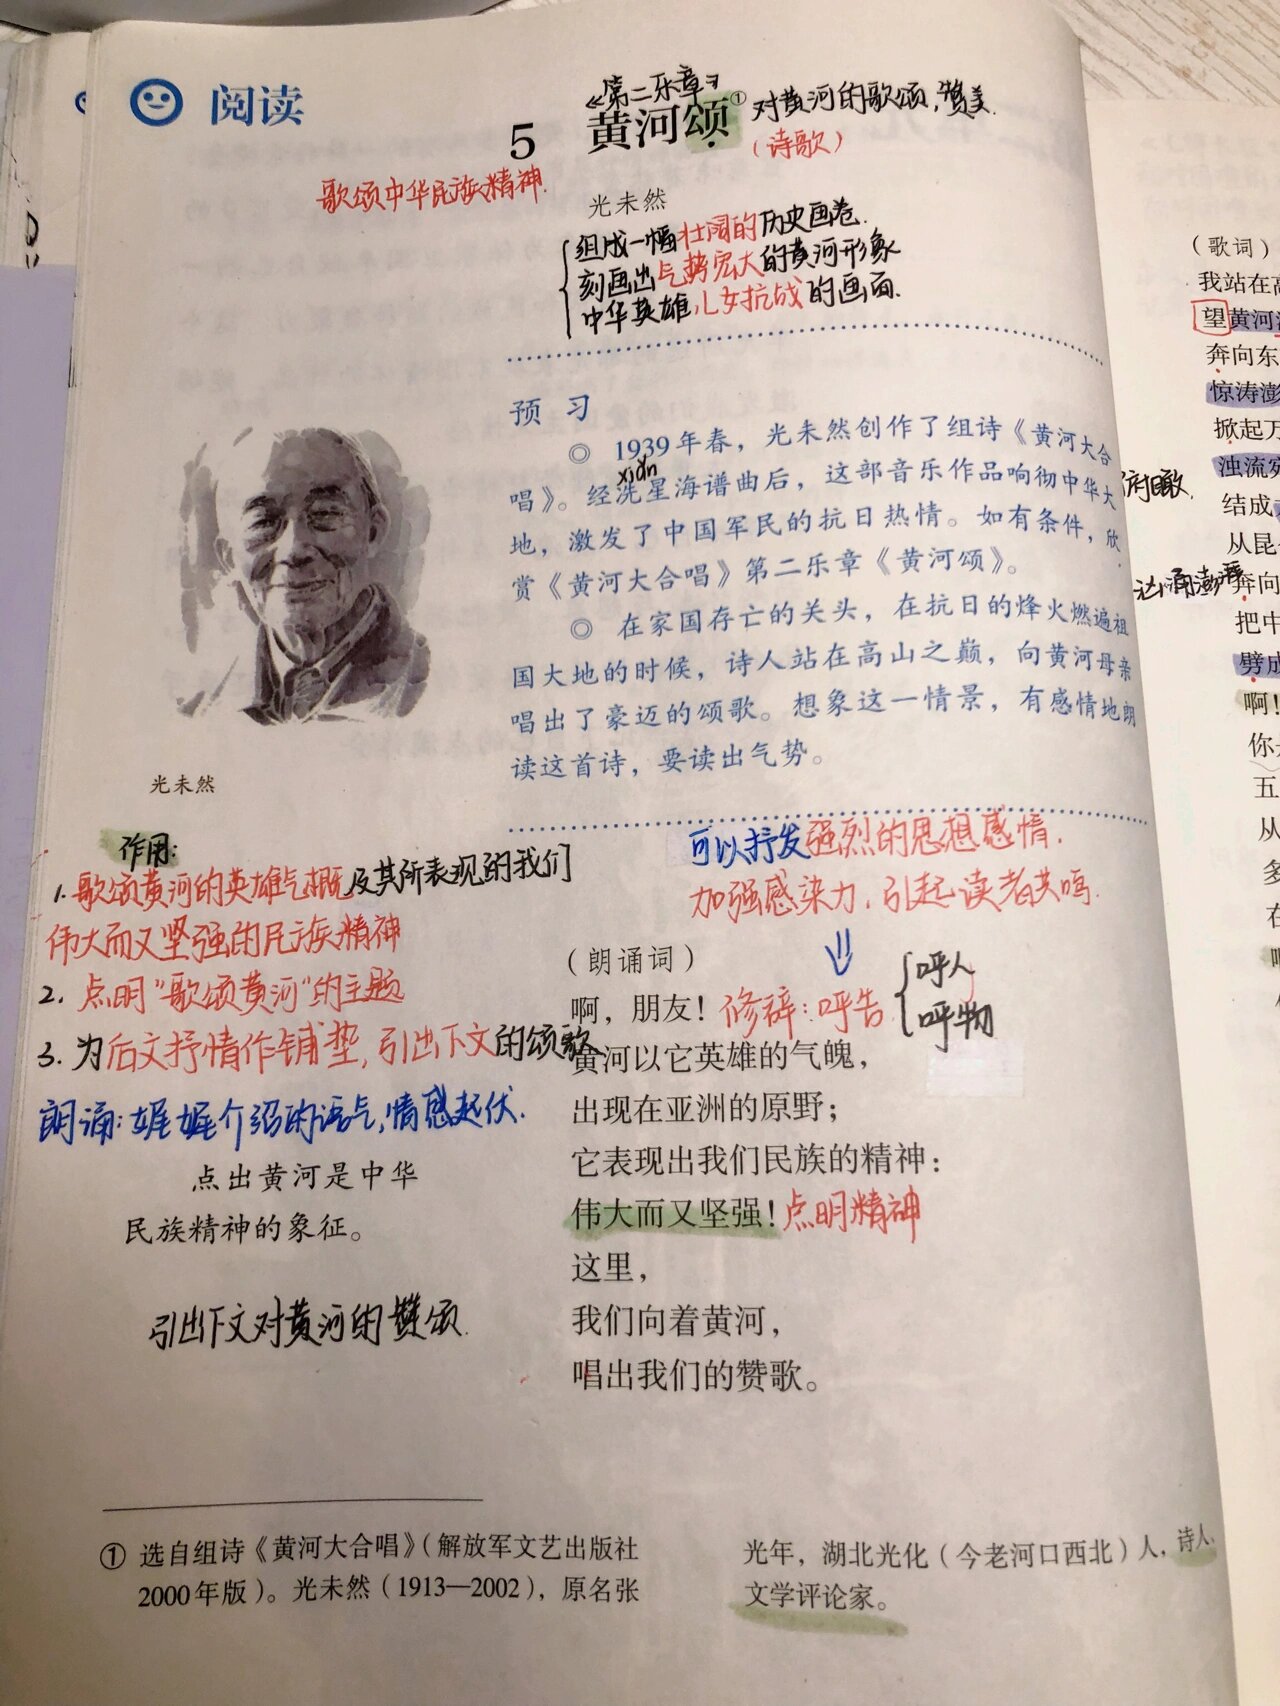 阅读
《第二乐章》
5 黄河颂① 对黄河的歌颂,赞美
(诗歌)
歌颂中华民族精神.
光未然
组成一幅壮阔的历史画卷.
刻画出气势宏大的黄河形象
中华英雄儿女抗战的画面.
预 习
◎ 1939年春，光未然创作了组诗《黄河大合
xiǎn
唱》。经冼星海谱曲后，这部音乐作品响彻中华大
地，激发了中国军民的抗日热情。如有条件，欣
赏《黄河大合唱》第二乐章《黄河颂》。
◎ 在家国存亡的关头，在抗日的烽火燃遍祖
国大地的时候，诗人站在高山之巅，向黄河母亲
唱出了豪迈的颂歌。想象这一情景，有感情地朗
读这首诗，要读出气势。
光未然
作用:
1.歌颂黄河的英雄气概及其所表现的我们
伟大而又坚强的民族精神
2.点明"歌颂黄河"的主题
3.为后文抒情作铺垫,引出下文的颂歌
朗诵:娓娓介绍的语气,情感起伏.
点出黄河是中华
民族精神的象征。
引出下文对黄河的赞颂.
可以抒发强烈的思想感情.
加强感染力,引起读者共鸣.
（朗诵词）
啊，朋友！ 修辞:呼告 呼人
呼物
黄河以它英雄的气魄，
出现在亚洲的原野；
它表现出我们民族的精神：
伟大而又坚强！ 点明精神
这里，
我们向着黄河，
唱出我们的赞歌。
① 选自组诗《黄河大合唱》（解放军文艺出版社
2000年版）。光未然（1913—2002），原名张
光年，湖北光化（今老河口西北）人，诗人、
文学评论家。
（歌词）
我站在高
望黄河
奔向东
惊涛澎
掀起万
浊流宛
俯瞰.
结成
从昆
汹涌澎湃
奔向
把中
劈成
啊！
你
五
从
多
在